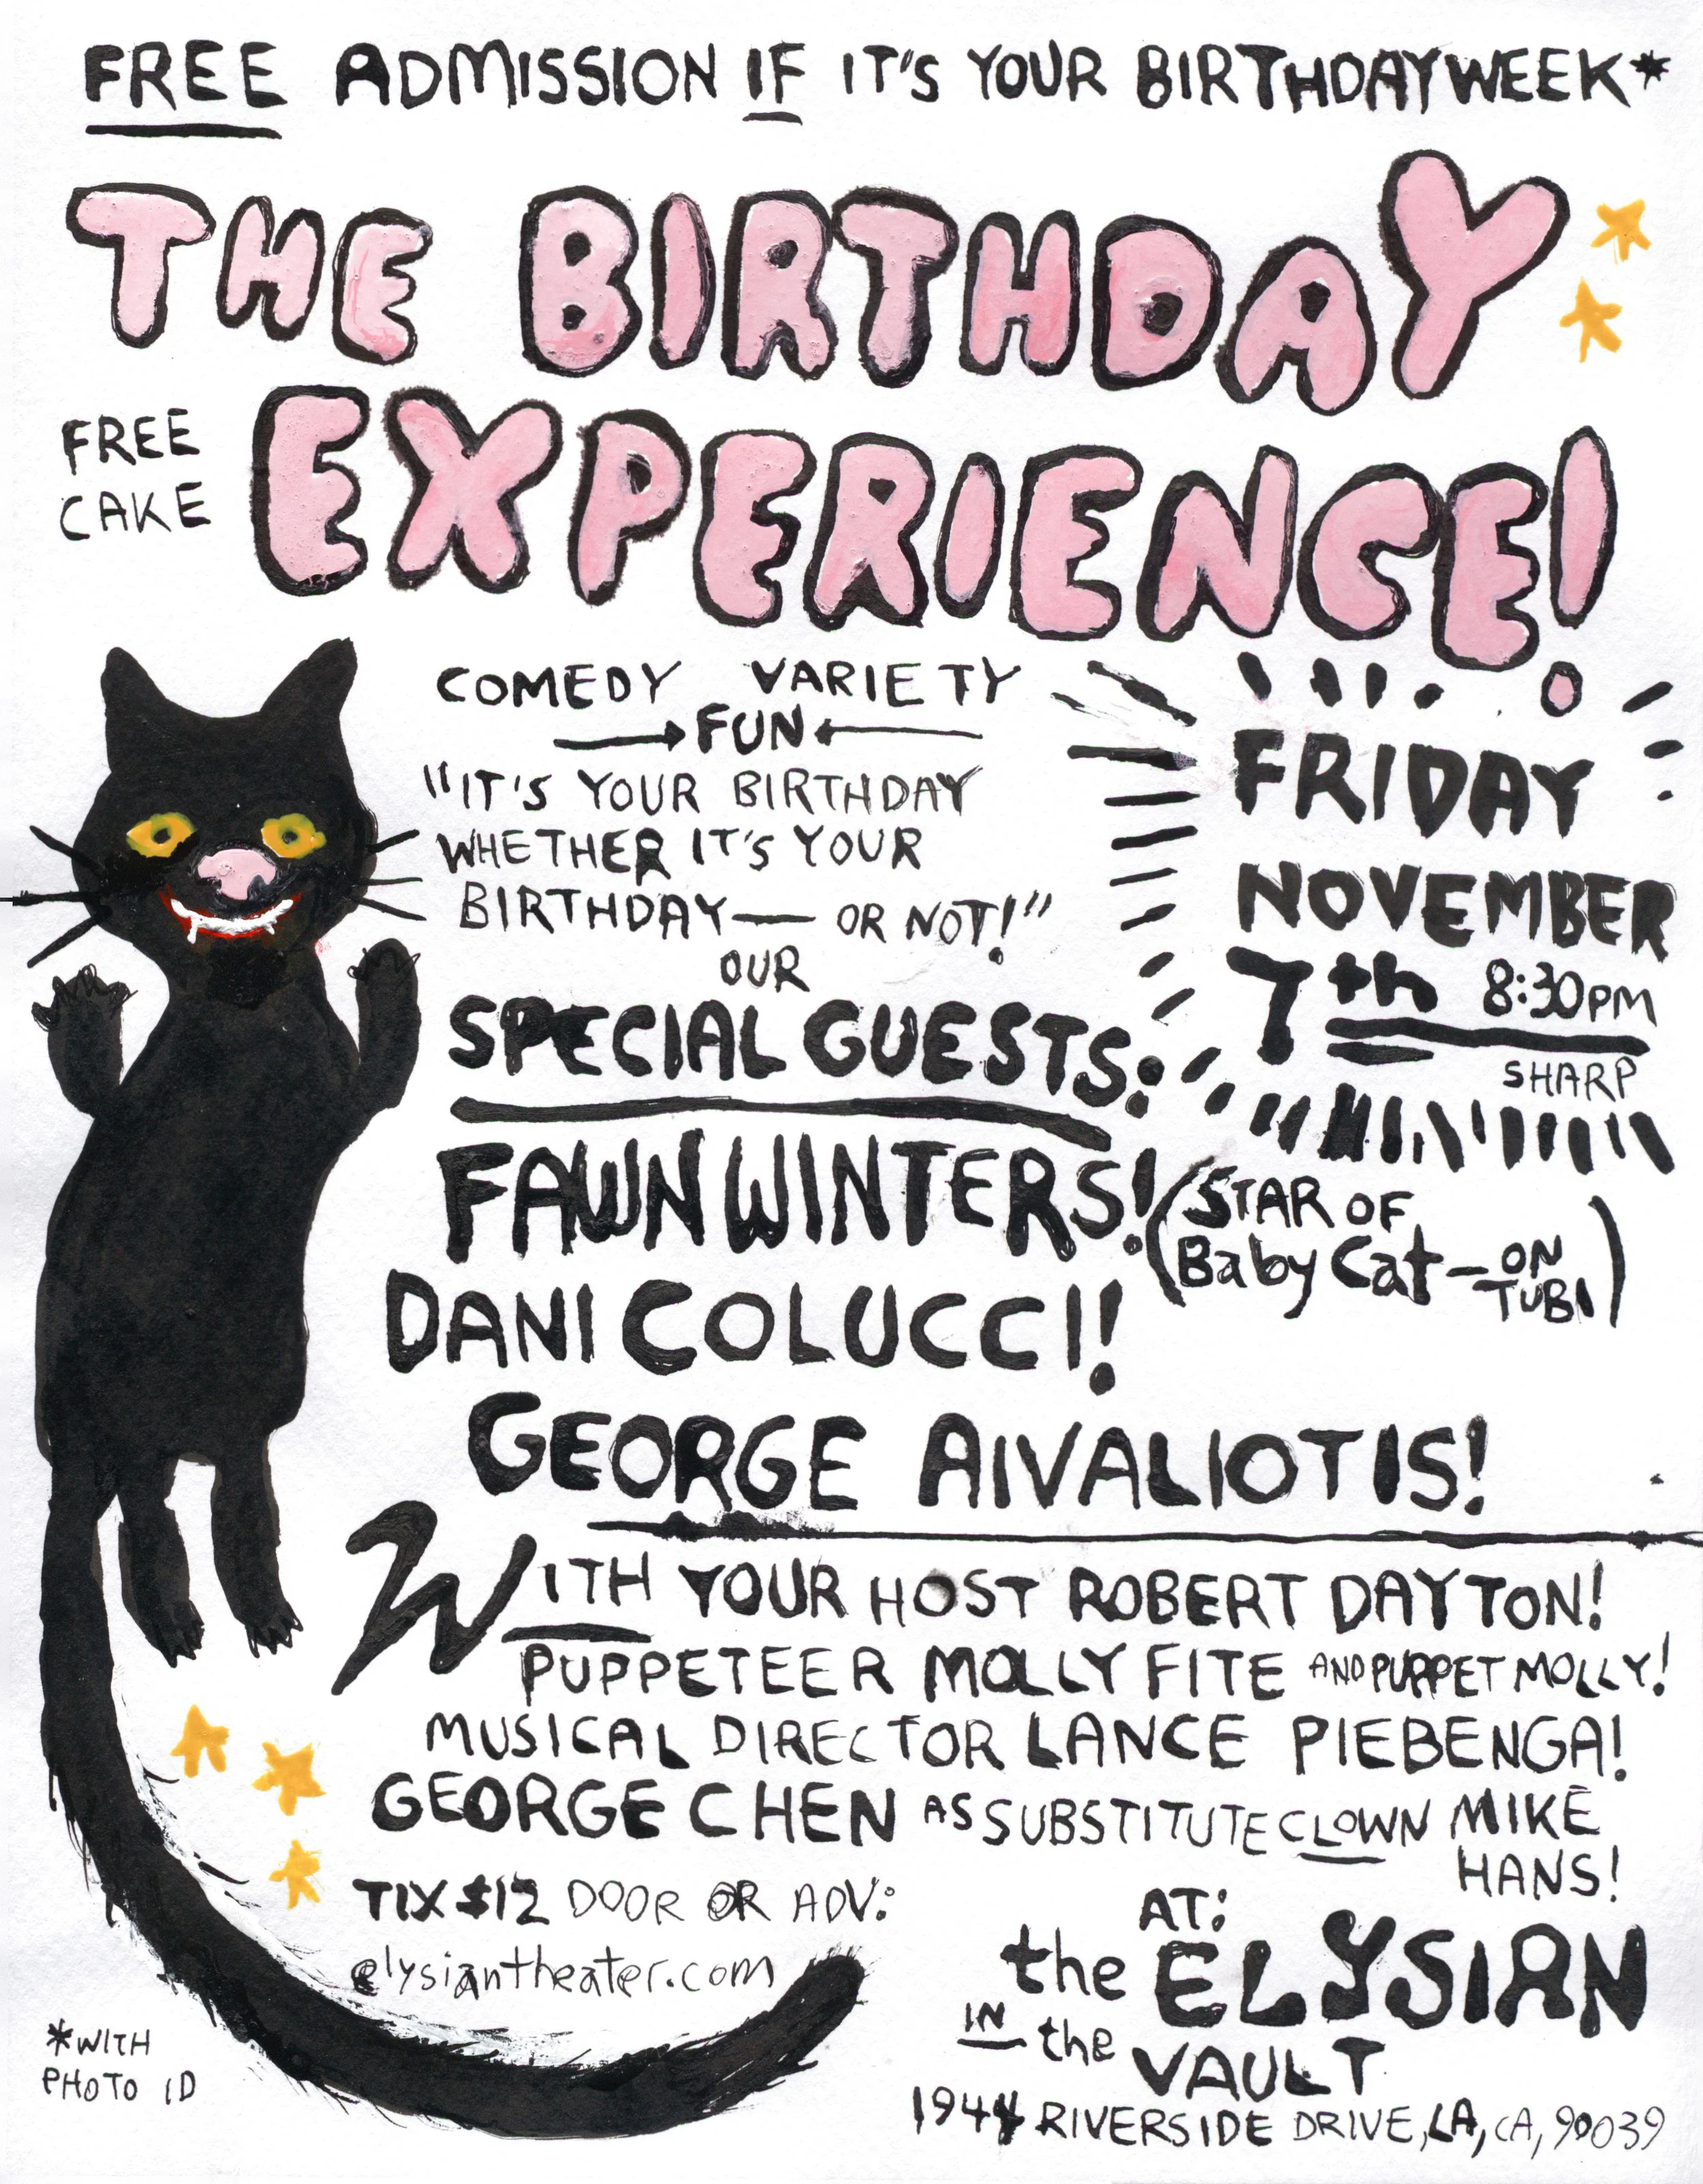 FREE ADMISSION IF IT'S YOUR BIRTHDAY WEEK*
THE BIRTHDAY
EXPERIENCE!
FREE
CAKE
COMEDY VARIETY
FUN
"IT'S YOUR BIRTHDAY
WHETHER IT'S YOUR
BIRTHDAY — OR NOT!"
FRIDAY
NOVEMBER
7th 8:30PM
SHARP
OUR
SPECIAL GUESTS:
FAWN WINTERS!
(STAR OF
Baby Cat — ON
TUBI)
DANI COLUCCI!
GEORGE AIVALIOTIS!
WITH YOUR HOST ROBERT DAYTON!
PUPPETEER MOLLY FITE AND PUPPET MOLLY!
MUSICAL DIRECTOR LANCE PIEBENGA!
GEORGE CHEN AS SUBSTITUTE CLOWN MIKE
HANS!
TIX $12 DOOR OR ADV:
elysiantheater.com
AT:
the ELYSIAN
IN the
VAULT
1944 RIVERSIDE DRIVE, LA, CA, 90039
*WITH
PHOTO ID